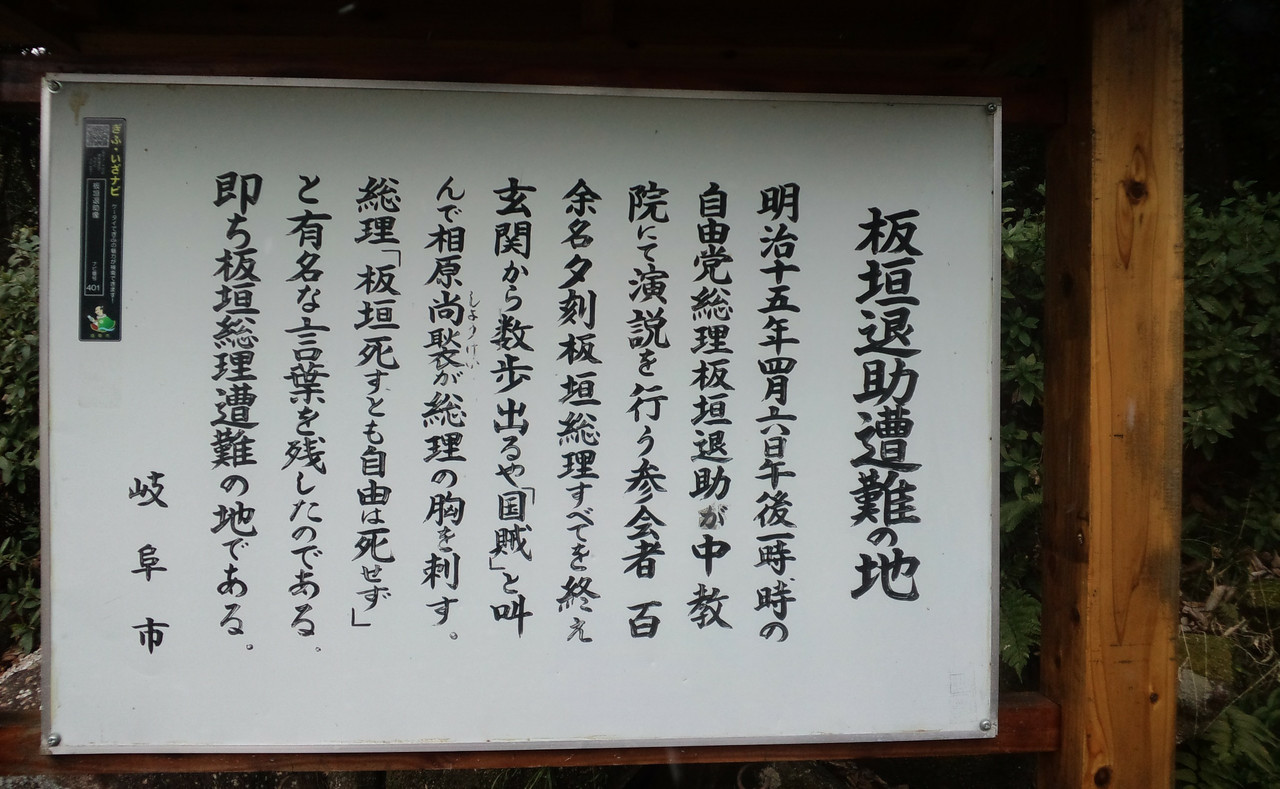 板垣退助遭難の地
明治十五年四月六日午後一時、時の
自由党総理板垣退助が中教
院にて演説を行う参会者 百
余名夕刻板垣総理すべてを終え
玄関から数歩出るや「国賊」と叫
んで相原尚褧が総理の胸を刺す。
しょうけい
総理「板垣死すとも自由は死せず」
と有名な言葉を残したのである。
即ち板垣総理遭難の地である。
岐阜市
ぎふ・いざナビ
板垣退助像
ナビ番号
401